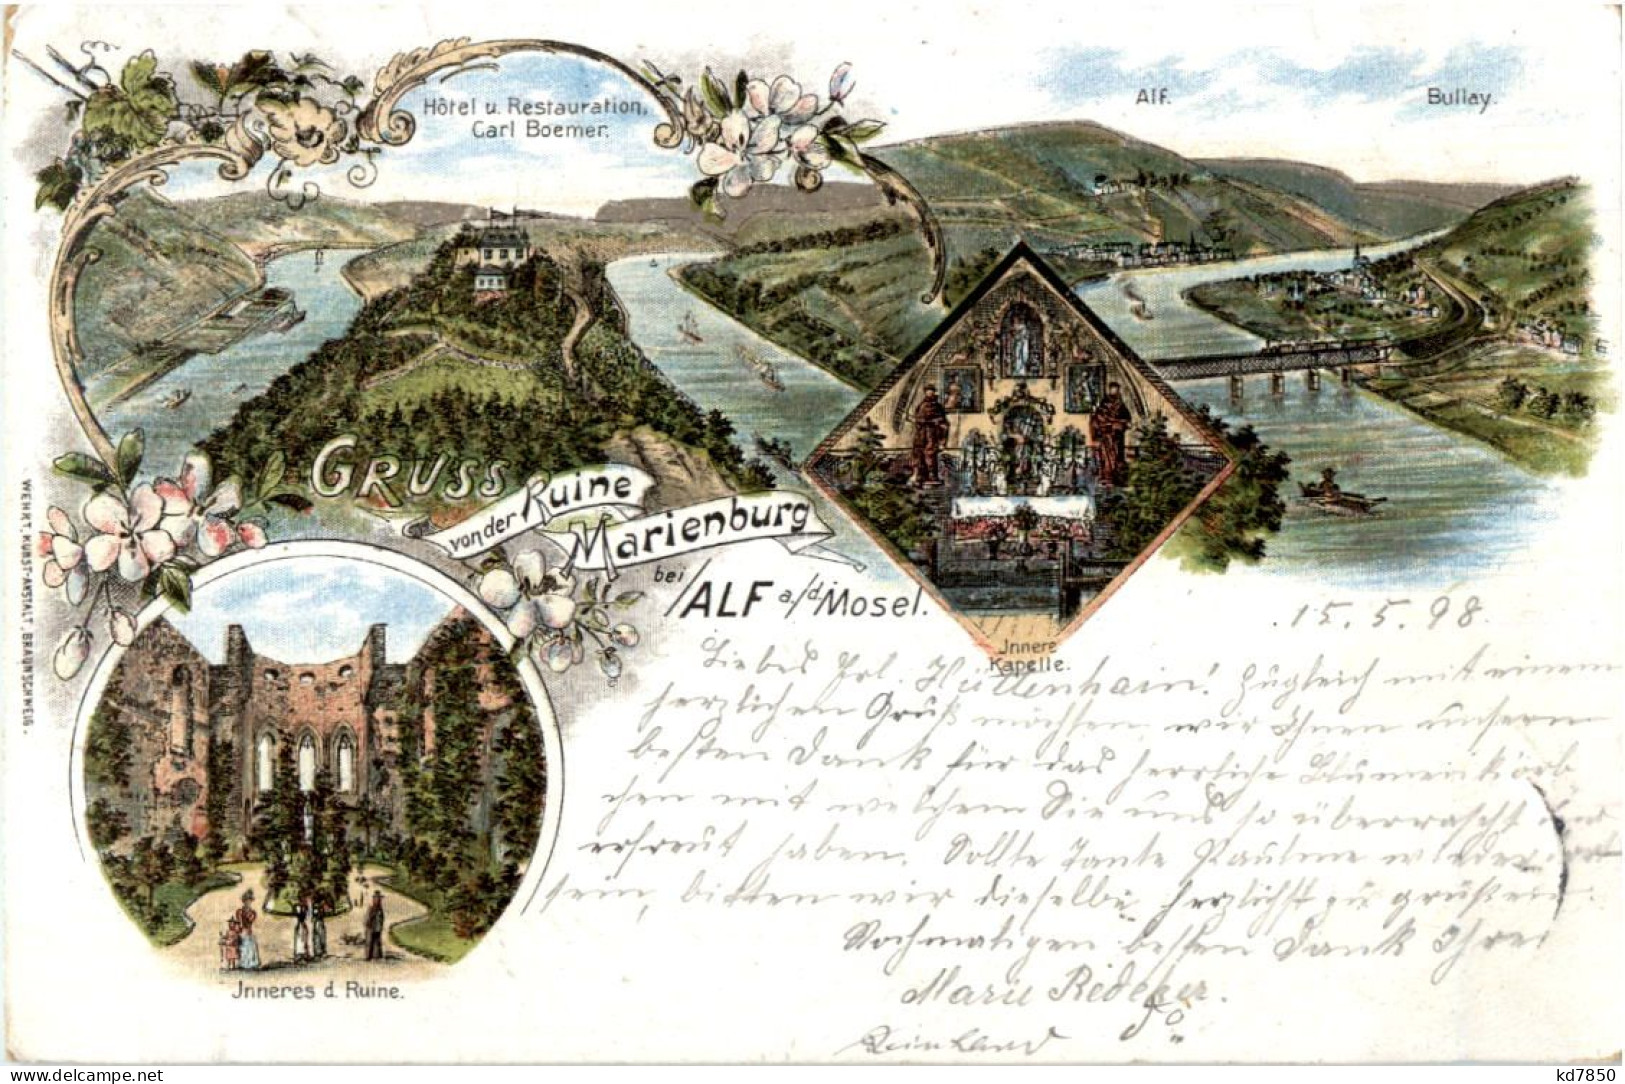 Hôtel u. Restauration,
Carl Boemer.
Alf.
Bullay.
GRUSS
von der Ruine
Marienburg
bei ALF a/d Mosel.
Jnnere
Kapelle.
Jnneres d. Ruine.
WEHRT, KUNST-ANSTALT, BRAUNSCHWEIG.
15. 5. 98.
Liebes Frl. Hüllenhain! Zugleich mit einem
herzlichen Gruß möchten wir Ihnen unsern
besten Dank für das herrliche Blumenkörb
chen mit welchem Sie uns so überrascht
erfreut haben. Sollte Tante Pauline wieder dort
sein, bitten wir dieselbe herzlichst zu grüßen.
Nochmaligen besten Dank Ihre
Marie
kd7850